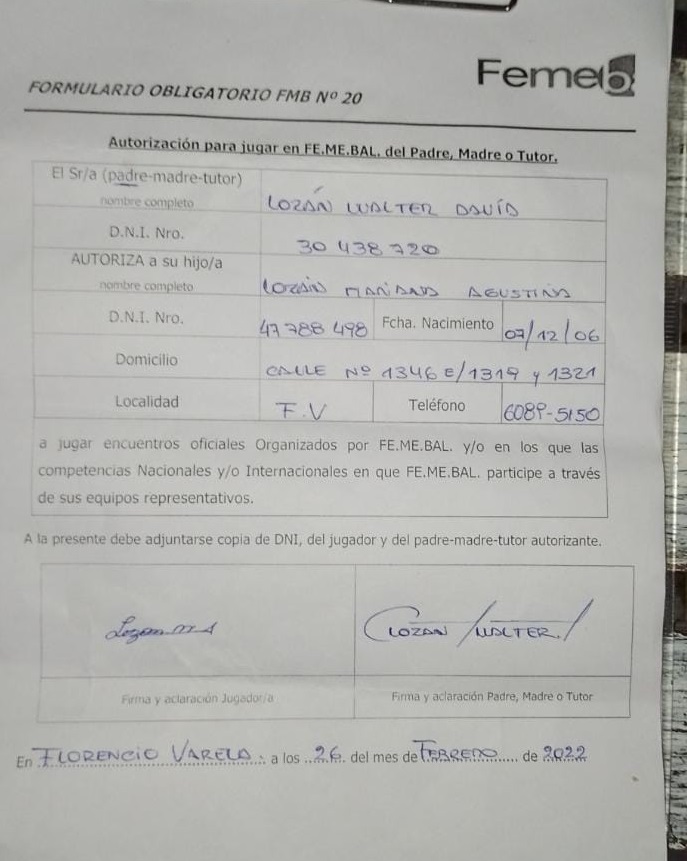 Femeb
FORMULARIO OBLIGATORIO FMB Nº 20
Autorización para jugar en FE.ME.BAL. del Padre, Madre o Tutor.
El Sr/a (padre-madre-tutor)
nombre completo
LOZÁN WALTER DAVID
D.N.I. Nro.
30 438 720
AUTORIZA a su hijo/a
nombre completo
LOZÁN MARIANO AGUSTIN
D.N.I. Nro.
47 788 498
Fcha. Nacimiento
07/12/06
Domicilio
CALLE Nº 1346 E/1319 y 1321
Localidad
F.V
Teléfono
6089-5150
a jugar encuentros oficiales Organizados por FE.ME.BAL. y/o en los que las
competencias Nacionales y/o Internacionales en que FE.ME.BAL. participe a través
de sus equipos representativos.
A la presente debe adjuntarse copia de DNI, del jugador y del padre-madre-tutor autorizante.
Lozan M A
LOZAN WALTER
Firma y aclaración Jugador/a
Firma y aclaración Padre, Madre o Tutor
En FLORENCIO VARELA a los 26 del mes de FEBRERO de 2022